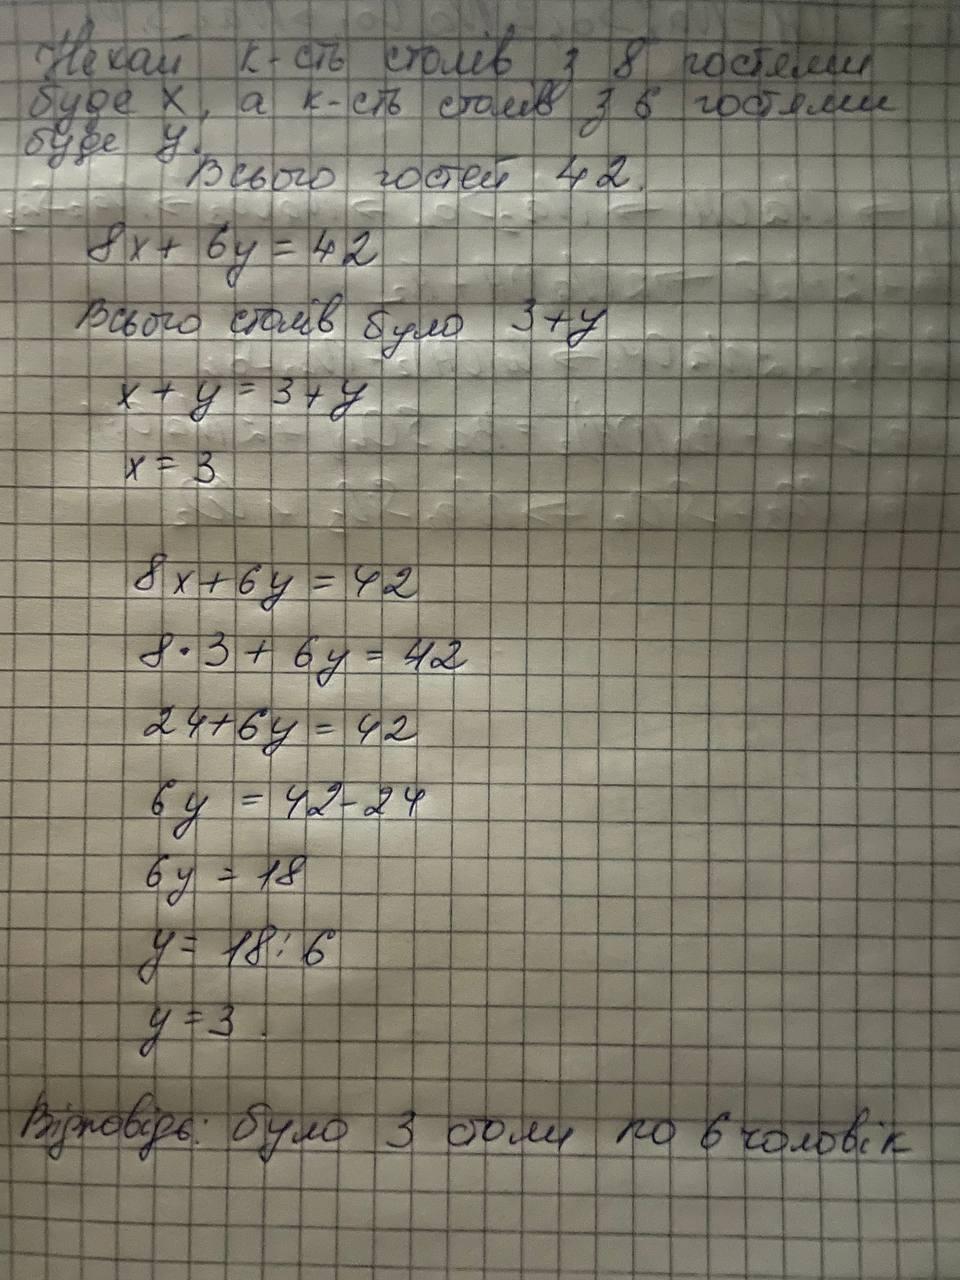 Нехай к-сть столів з 8 гостями
буде x, а к-сть столів з 6 гостями
буде y.
Всього гостей 42.
8x + 6y = 42
Всього столів було 3+y
x + y = 3 + y
x = 3
8x + 6y = 42
8 · 3 + 6y = 42
24 + 6y = 42
6y = 42 - 24
6y = 18
y = 18 : 6
y = 3.
Відповідь: було 3 столи по 6 чоловік